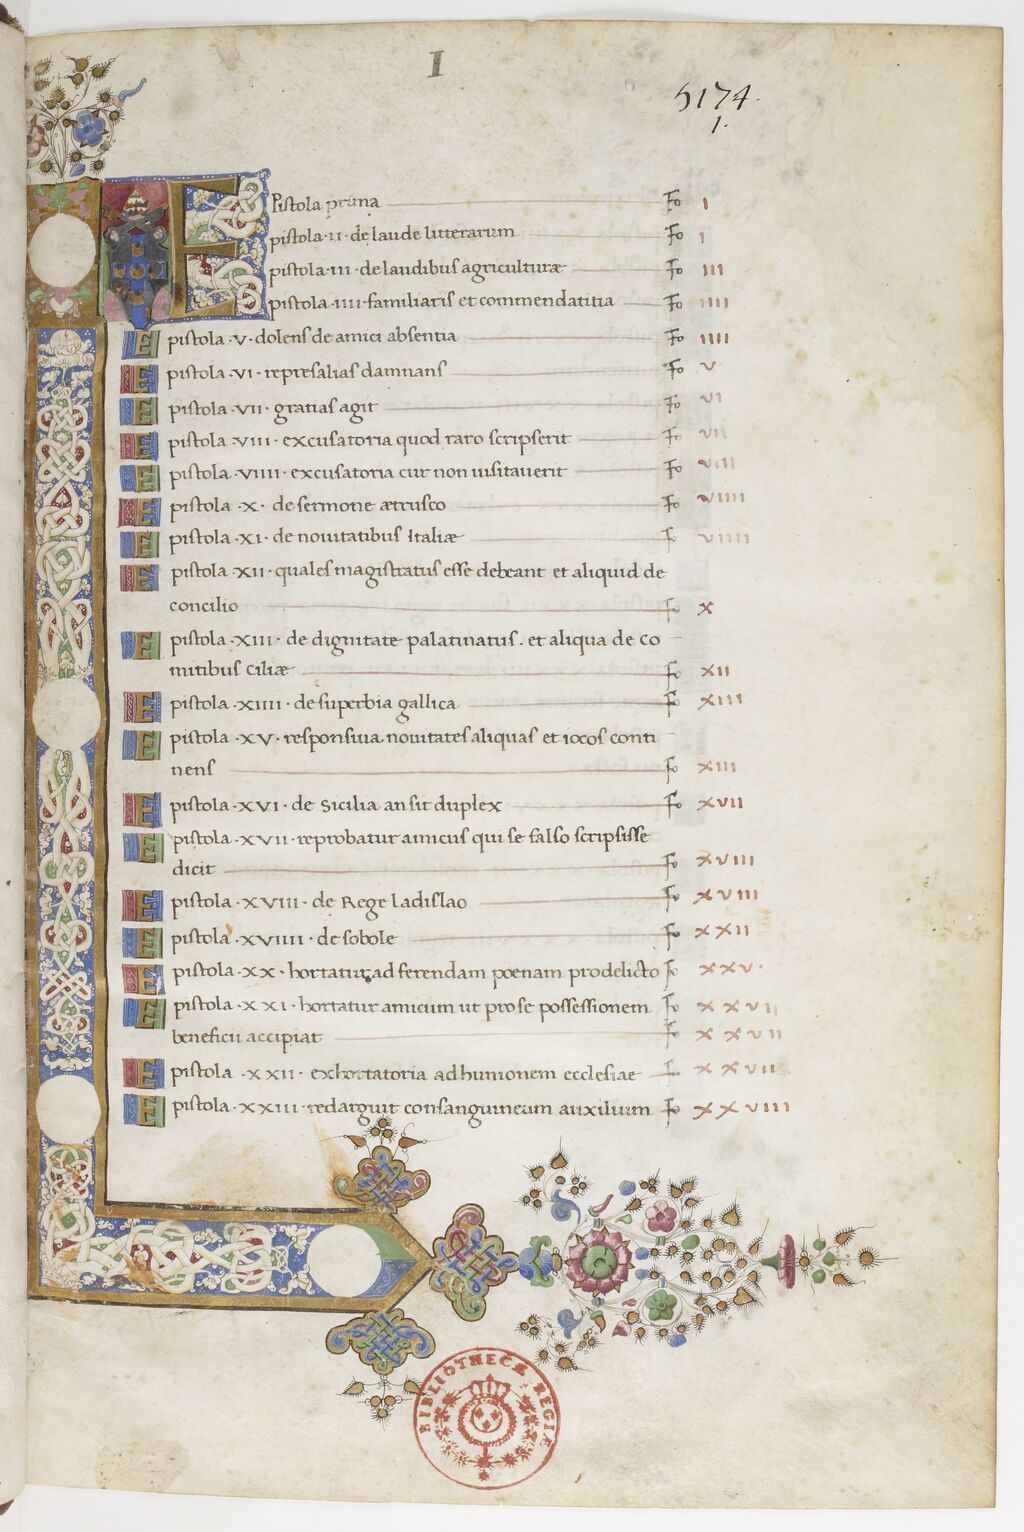 I
5174.
1.
EPistola prima Fo I
Epistola·II·de laude litterarum Fo I
Epistola·III·de laudibus agriculturæ Fo III
Epistola·IIII·familiaris et commendatitia Fo IIII
Epistola·V·dolens de amici absentia Fo IIII
Epistola·VI·represalias damnans Fo V
Epistola·VII·gratias agit Fo VI
Epistola·VIII·excusatoria quod raro scripserit Fo VII
Epistola·VIIII·excusatoria cur non uisitauerit Fo VIII
Epistola·X·de sermone ætrusco Fo VIIII
Epistola·XI·de nouitatibus Italiæ Fo VIIII
Epistola·XII·quales magistratus esse debeant et aliquid de
concilio Fo X
Epistola·XIII·de dignitate palatinatus. et aliqua de co
mitibus Ciliæ Fo XII
Epistola·XIIII·de superbia gallica Fo XIII
Epistola·XV·responsiua nouitates aliquas et iocos conti
nens Fo XIII
Epistola·XVI·de Sicilia an sit duplex Fo XVII
Epistola·XVII·reprobatur amicus qui se falso scripsisse
dicit Fo XVIII
Epistola·XVIII·de Rege ladislao Fo XVIII
Epistola·XVIIII·de sobole Fo XXII
Epistola·XX·hortatur ad ferendam poenam pro delicto Fo XXV·
Epistola·XXI·hortatur amicum ut pro se possessionem Fo XXVII
beneficii accipiat Fo XXVII
Epistola·XXII·exhortatoria ad hunionem ecclesiae Fo XXVII
Epistola·XXIII·redarguit consanguineum auxilium Fo XXVIII
BIBLIOTHECÆ REGIÆ